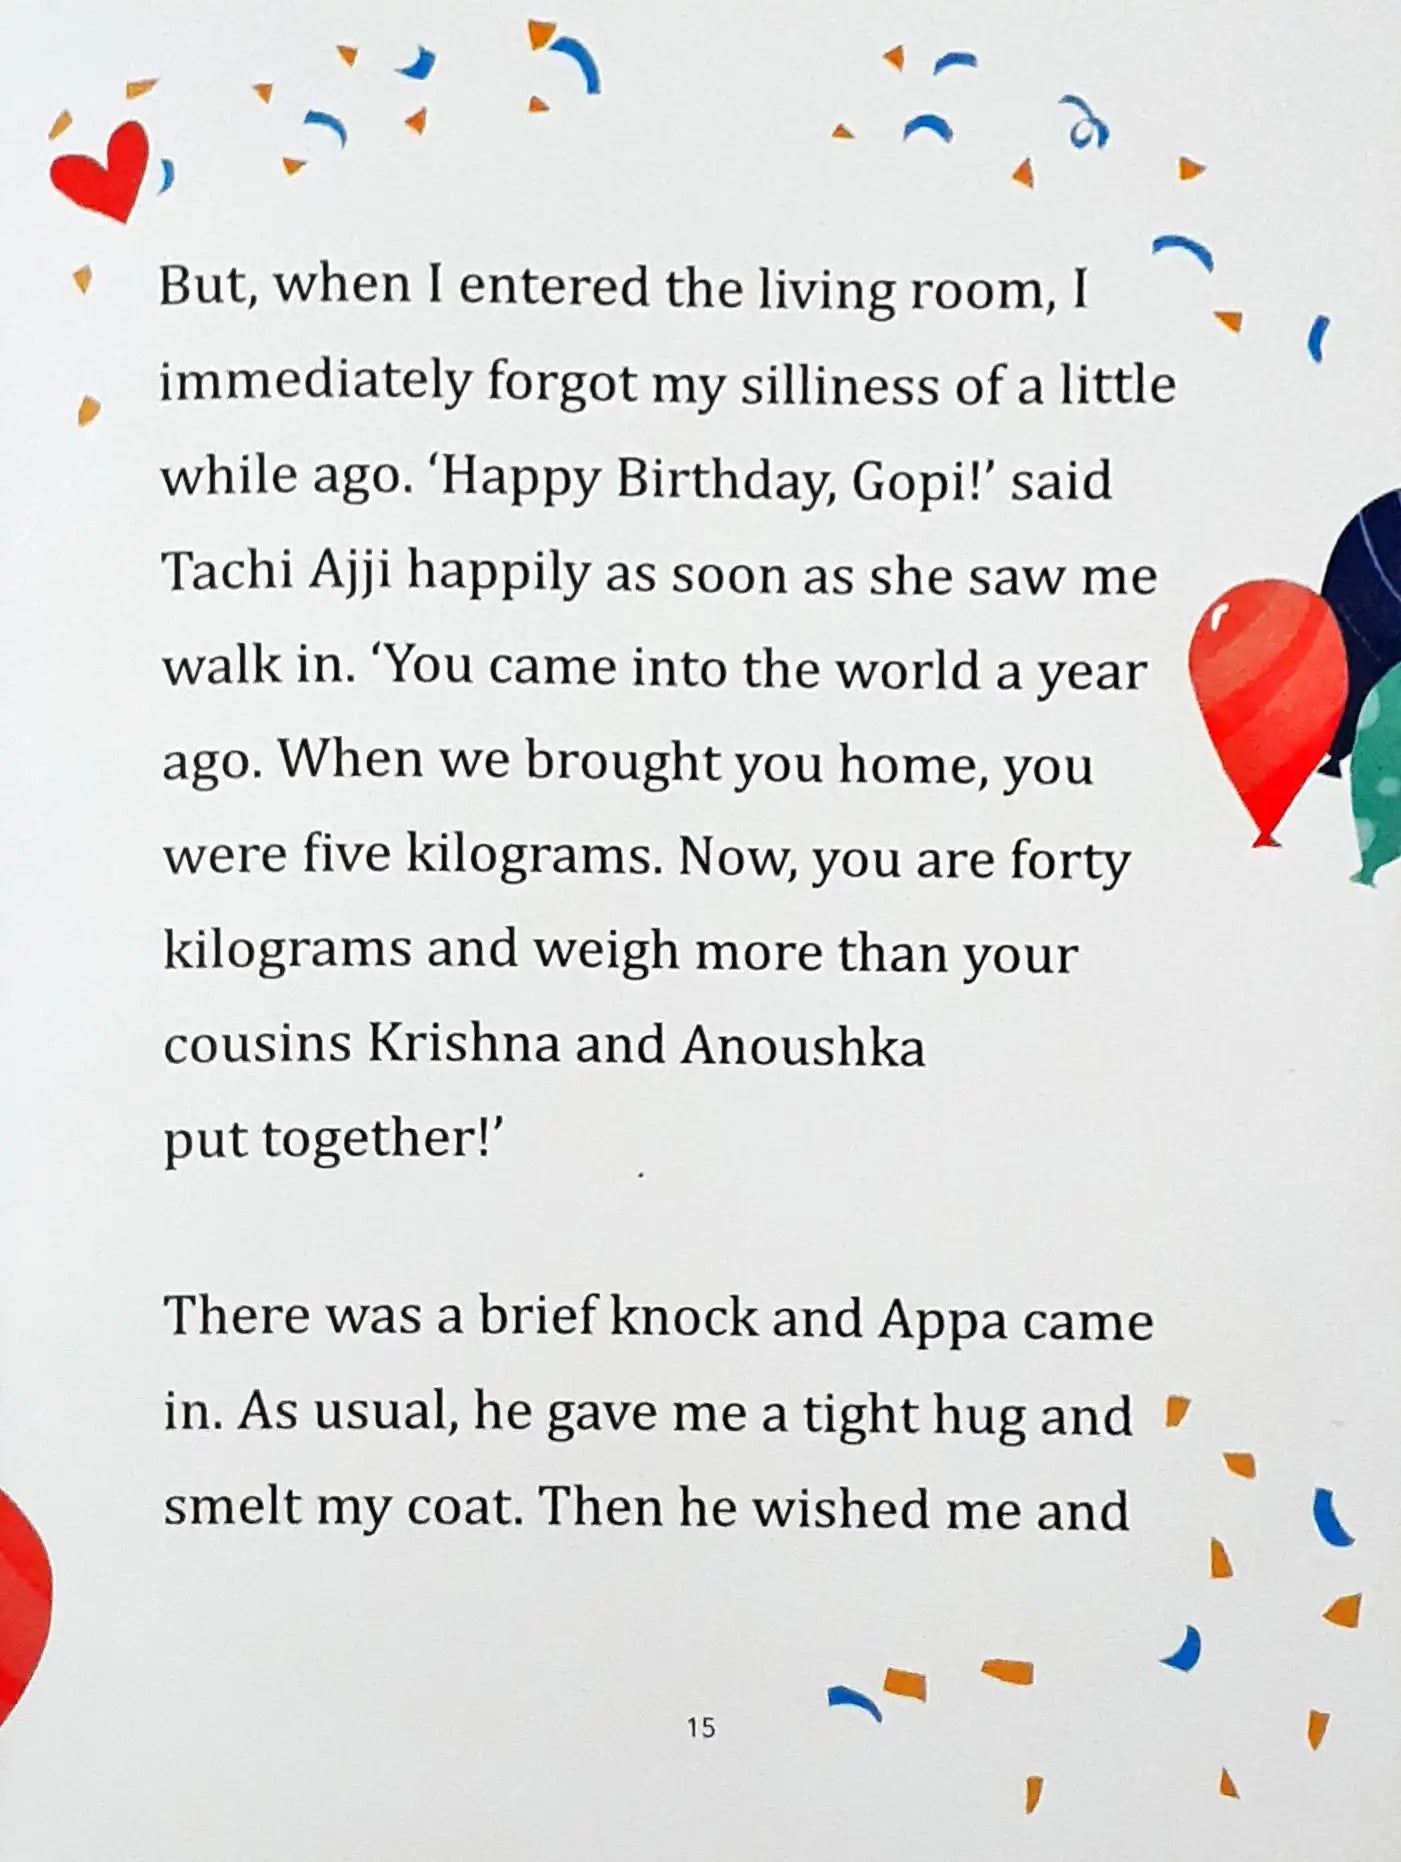 But, when I entered the living room, I
immediately forgot my silliness of a little
while ago. ‘Happy Birthday, Gopi!’ said
Tachi Ajji happily as soon as she saw me
walk in. ‘You came into the world a year
ago. When we brought you home, you
were five kilograms. Now, you are forty
kilograms and weigh more than your
cousins Krishna and Anoushka
put together!’
There was a brief knock and Appa came
in. As usual, he gave me a tight hug and
smelt my coat. Then he wished me and
15